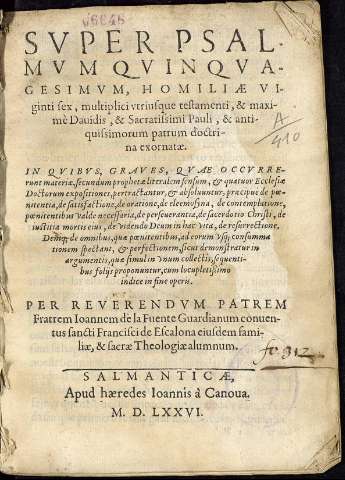 SVPER PSAL-
MVM QVINQVA-
GESIMVM, HOMILIÆ VI-
ginti sex, multiplici vtriusque testamenti, & maxi-
mè Dauidis, & Sacratissimi Pauli, & anti-
quissimorum patrum doctri-
na exornatæ.
A
410
IN QVIBVS, GRAVES, QVAE OCCVRRE-
runt materiæ, secundum prophetæ literalem sensum, & quatuor Ecclesiæ
Doctorum expositiones, pertractantur, & absoluuntur, præcipuè de pœ-
nitentia, de satisfactione, de oratione, de eleemosina, de contemplatione,
pœnitentibus valde necessaria, de perseuerantia, de sacerdotio Christi, de
iustitia mortis eius, de videndo Deum in hac vita, de resurrectione.
Deniq; de omnibus, quæ pœnitentibus, ad eorum vsq; consumma
tionem spectant, & perfectionem, sicut demonstratur in
argumentis, quæ simul in vnum collectis, sequenti-
bus folijs proponuntur, cum locupletissimo
indice in fine operis.
PER REVERENDVM PATREM
Fratrem Ioannem de la Fuente Guardianum conuen-
tus sancti Francisci de Escalona eiusdem fami-
liæ, & sacræ Theologiæ alumnum.
SALMANTICÆ,
Apud hæredes Ioannis à Canoua.
M. D. LXXVI.